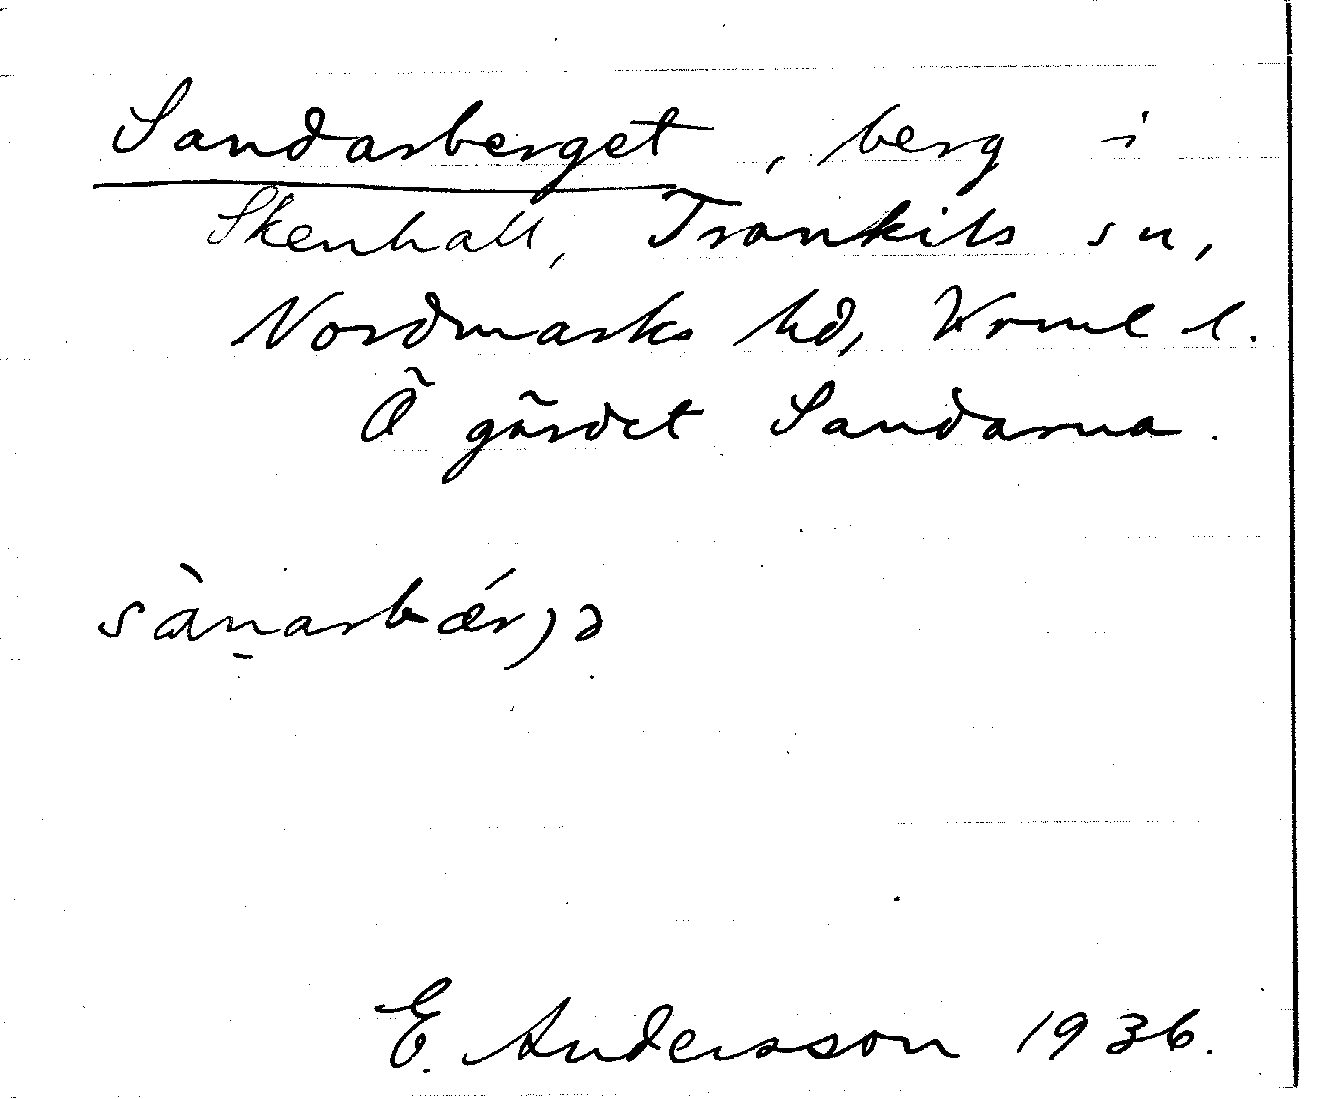 Sandarberget, berg i
Skenhall, Trankils sn,
Nordmarks hd, Vrml l.
Å gärdet Sandarna.
sànarbǽr,ə
E. Andersson 1936.